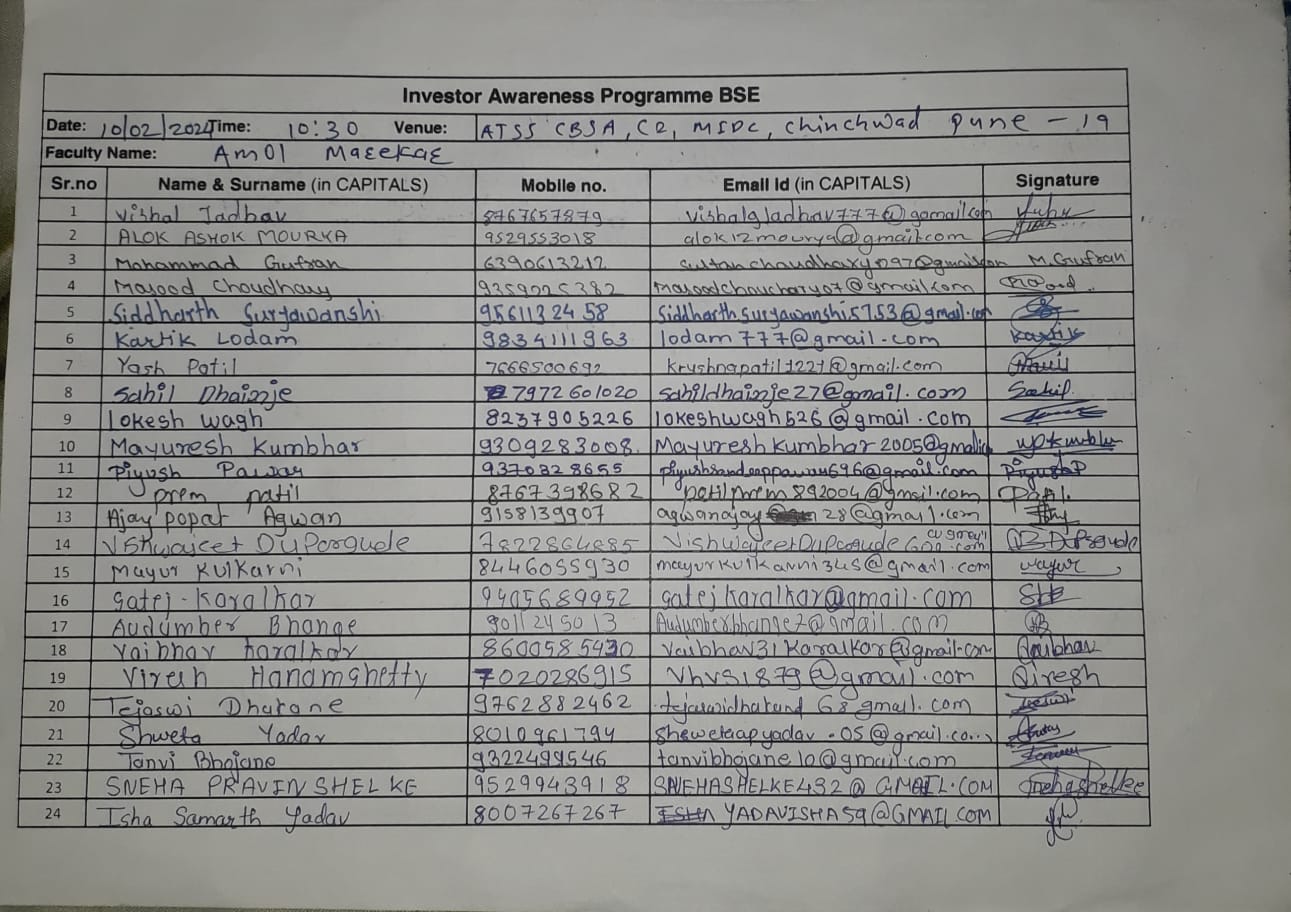 Investor Awareness Programme BSE
Date: 10/02/2024 Time: 10:30 Venue: ATSS CBSA, CR, MIDC, Chinchwad pune - 19
Faculty Name: Amol
Sr.no Name & Surname (in CAPITALS) Mobile no. Email Id (in CAPITALS) Signature
1 Vishal Jadhav 8767657879 vishalgjadhav777@gamail.com
2 ALOK ASHOK MOURYA 9529553018 alok12mourya@gmail.com
3 Mohammad Gufran 6390613212 M.Gufran
4 Masood Choudhary
5 Siddharth Suryawanshi 9561132458 Siddharthsuryawanshi5753@gmail.com
6 Kartik Lodam 9834111963 lodam777@gmail.com Kartik
7 Yash Patil 7666500692 krushnapatil1221@gmail.com
8 Sahil Dhainje 7972601020 sahildhainje27@gmail.com Sahil
9 lokesh wagh 8237905226 lokeshwagh526@gmail.com
10 Mayuresh Kumbhar 9309283008.
11 Piyush Pawar 9370328655 PiyushP
12 prem patil 8767398682 patilprem892004@gmail.com Patil.
13 Ajay popat Agwan 9158139907 agwanajay 28@gmail.com
14
15 Mayur Kulkarni 8446055930 mayurkulkarni345@gmail.com mayur
16 gatej-Karalkar 9405689952 gatejkaralkar@gmail.com
17 Audumber Bhange 9011245013 Audumberbhange7@gmail.com
18 Vaibhav Karalkar 8600585430 Vaibhav31Karalkar@gmail.com Vaibhav
19 Viresh Hanamshetty 7020286915 Vhv31879@gmail.com Viresh
20 Tejaswi Dharane 9762882462
21 Shweta Yadav 8010961794
22 Tanvi Bhojane 9322499546 tanvibhojane10@gmail.com
23 SNEHA PRAVIN SHELKE 9529943918 SNEHASHELKE432@GMAIL.COM Snehashelke
24 Isha Samarth Yadav 8007267267 YADAVISHA59@GMAIL.COM